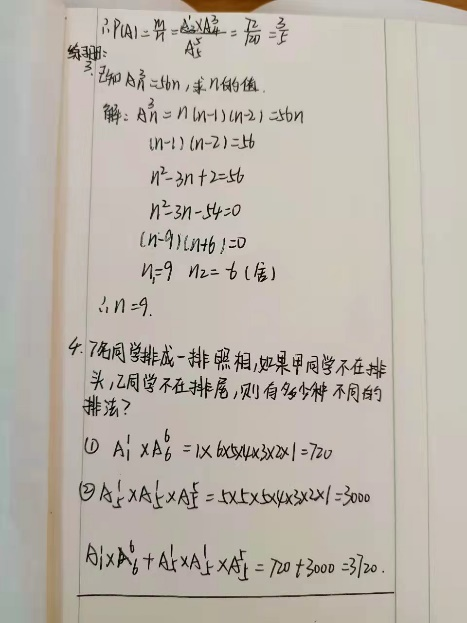 ∴P(A)=m/n=A₃¹×A₄³/A₅⁵=72/120=3/5
练习册:
3. 已知Aₙ³=56n,求n的值.
解:Aₙ³=n(n-1)(n-2)=56n
(n-1)(n-2)=56
n²-3n+2=56
n²-3n-54=0
(n-9)(n+6)=0
n₁=9 n₂=-6(舍)
∴n=9.
4. 7名同学排成一排照相,如果甲同学不在排
头,乙同学不在排尾,则有多少种不同的
排法?
① A₁¹×A₆⁶=1×6×5×4×3×2×1=720
② A₅¹×A₅¹×A₅⁵=5×5×5×4×3×2×1=3000
A₁¹×A₆⁶+A₅¹×A₅¹×A₅⁵=720+3000=3720.